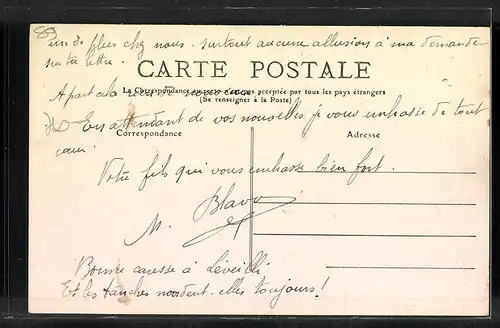 un de plus chez nous. surtout aucune allusion à ma demande
sur ta lettre.
CARTE POSTALE
La Correspondance au recto n'est pas acceptée par tous les pays étrangers
(Se renseigner à la Poste)
A part cela
En attendant de vos nouvelles je vous embrasse de tout
Correspondance
Adresse
cœur.
Votre fils qui vous embrasse bien fort.
M.
Bonne caresse à Léveillé
Et les tanches mordent-elles toujours!